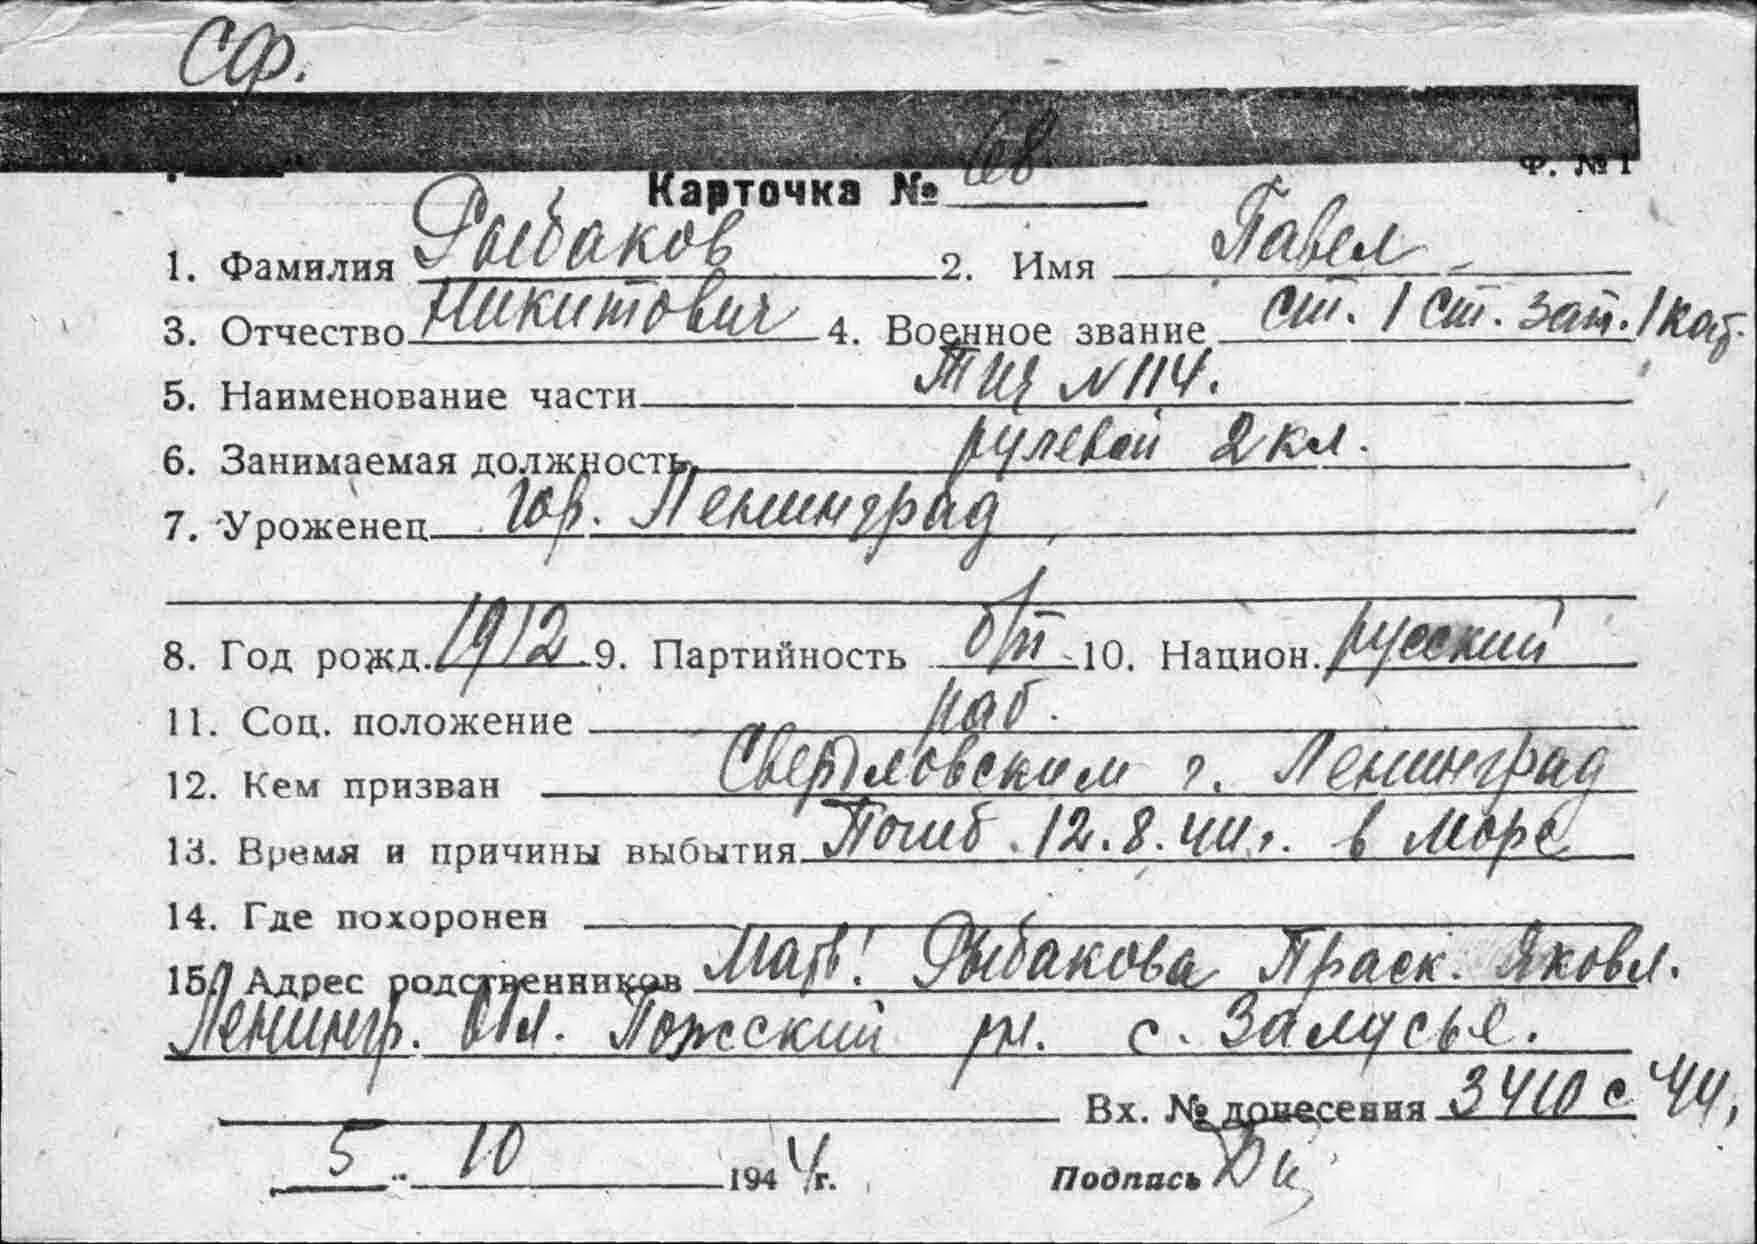 СФ.
Ф. № 1
Карточка № 68
1. Фамилия Рыбаков 2. Имя Павел
3. Отчество Никитович 4. Военное звание ст. 1 ст. зап. 1 кат.
5. Наименование части ТЩ № 114.
6. Занимаемая должность рулевой 2 кл.
7. Уроженец гор. Ленинград
8. Год рожд. 1912 9. Партийность б/п 10. Национ. русский
11. Соц. положение раб.
12. Кем призван Свердловским г. Ленинград
13. Время и причины выбытия Погиб 12.8.44 г. в море
14. Где похоронен
15. Адрес родственников Мать: Рыбакова Праск. Яковл.
Ленингр. обл. рн. с. Залусье.
Вх. № донесения 3410 с 44,
5 10 1944 г. Подпись